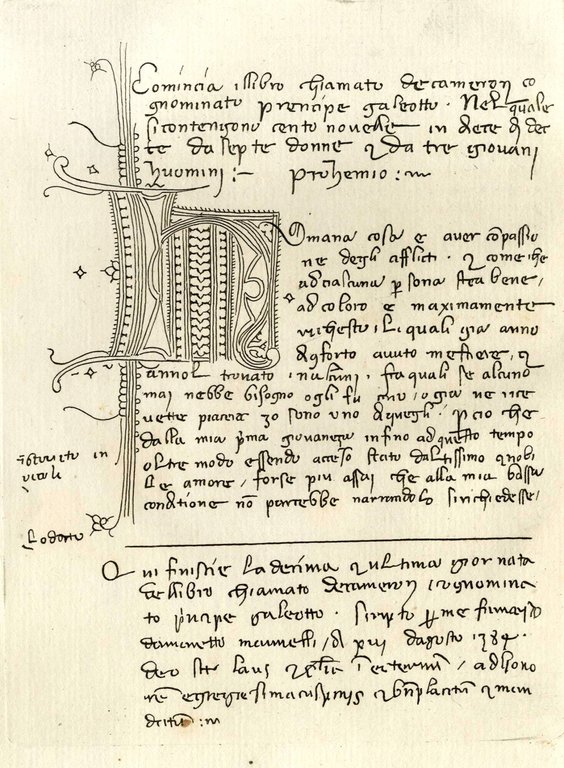 Comincia illibro chiamato decameron co
gnominato prencipe galeotto . Nel quale
si contengono cento novelle in diece di dec
te da septe donne & da tre giovani
huomini :~ Prohemio :~
Umana cosa e aver cõpassio
ne degli afflicti . & come che
ad ciascuna p̱sona stea bene /
ad coloro e maximamente
richesto / li quali gia anno
di cõforto avuto mestiere / &
annol trovato in alcuni . fra quali se alcuno
mai nebbe bisogno o gli fu caro / o gia ne rice
vette piacere io sono uno di quegli . p̱cio che
dalla mia p̃ma giovaneza infino ad questo tempo
oltre modo essendo acceso stato daltissimo & nobi
le amore / forse piu assai che alla mia bassa
conditione nõ parrebbe narrandolo si richiedesse /
in
Lodotto
Qui finiscie la decima & ultima giornata
del libro chiamato decameron cognomina
to p̃ncipe galeotto . scripto p̱ me
domenetto / di dagosto 1384 .
deo laus & / ad
&